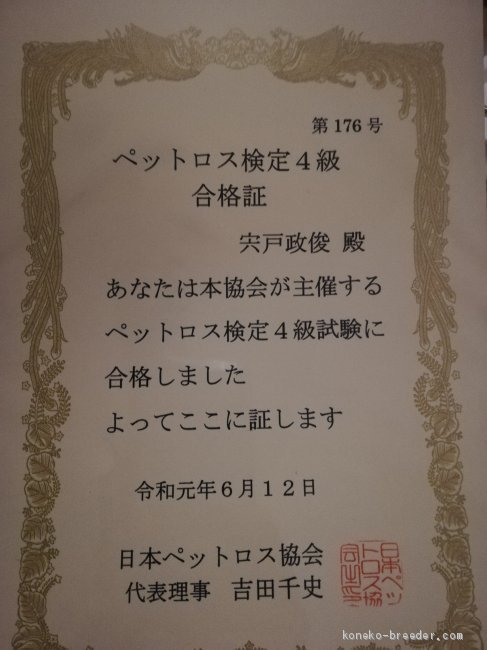 第176号
ペットロス検定4級
合格証
宍戸政俊 殿
あなたは本協会が主催する
ペットロス検定4級試験に
合格しました
よってここに証します
令和元年6月12日
日本ペットロス協会
代表理事 吉田千史
日本ペッ
トロス協
会之印
koneko-breeder.com